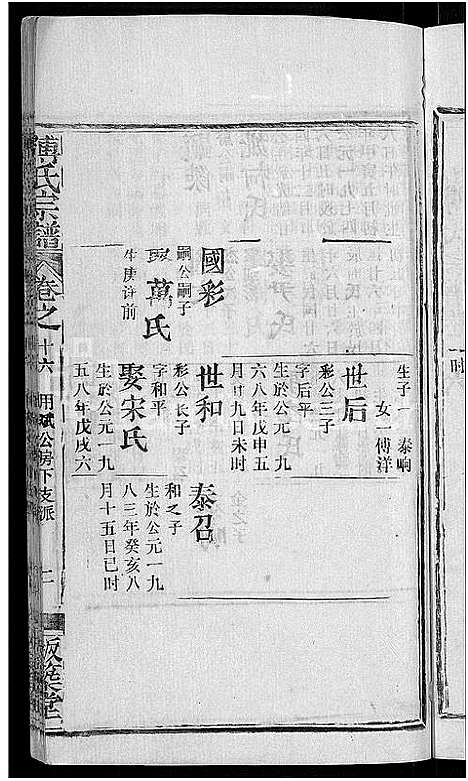 生子一 泰响
女一 傅洋
世后
彩公三子
字后平
生於公元一九
六八年戊申五
月廿九日未时
國彩
嗣公嗣子
娶萬氏
生庚谷前
世和
彩公长子
字和平
娶宋氏
生於公元一九
五八年戊戌六
泰召
和之子
生於公元一九
八三年癸亥八
月十五日已时
傅氏宗譜
卷之十六
用斌公房下支派
版築堂
时